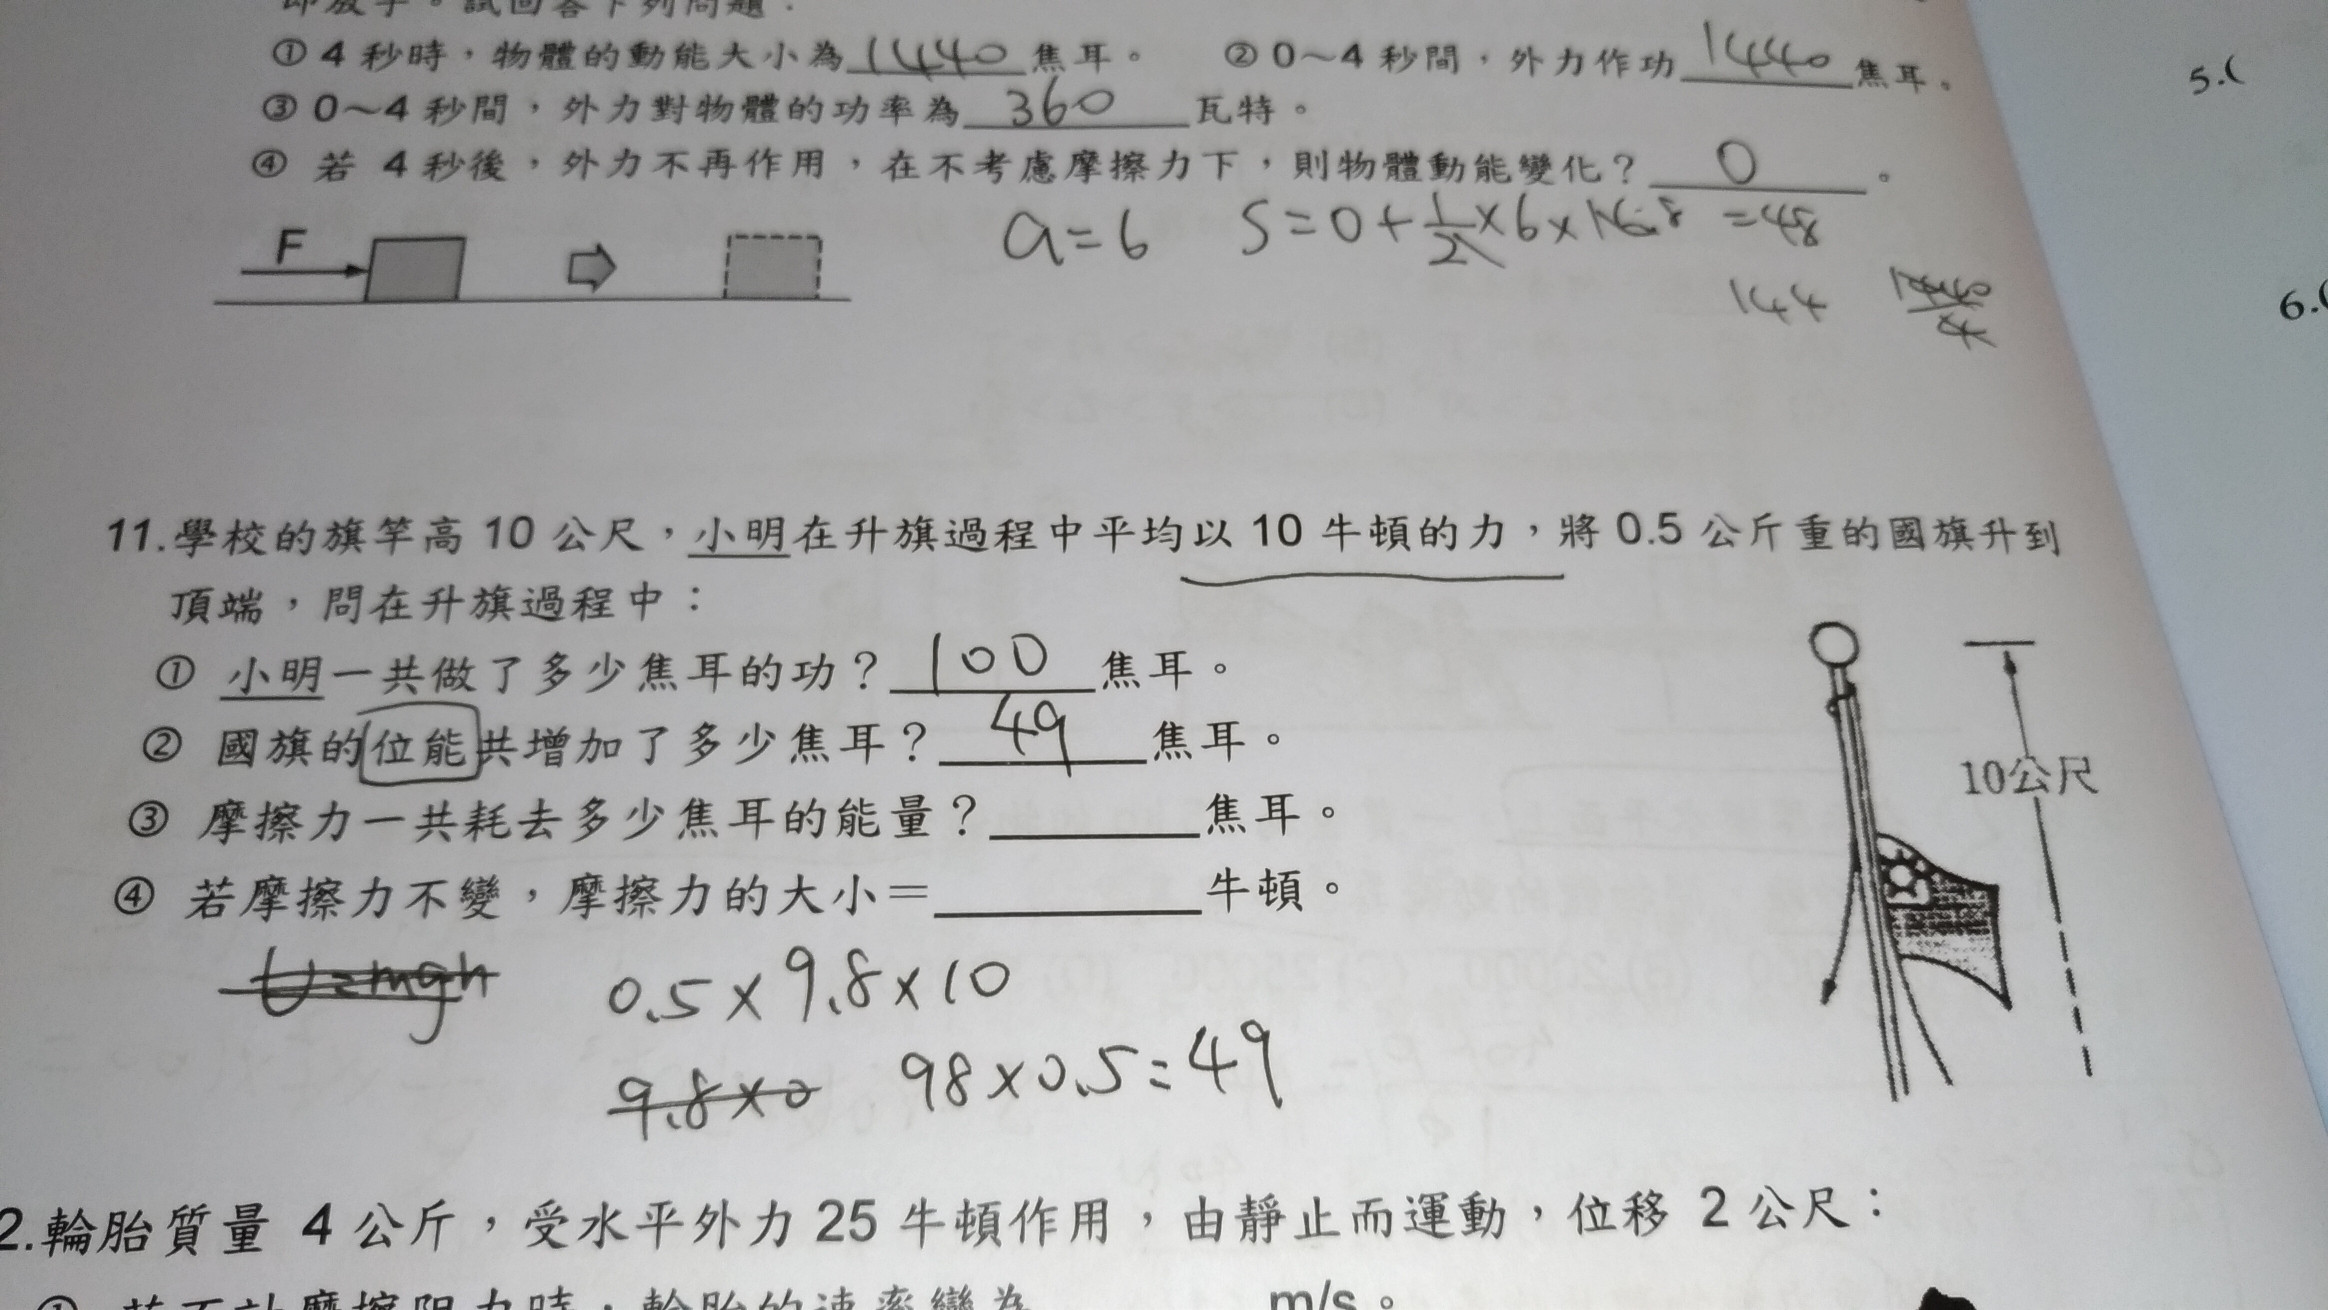 即放手。試回答下列問題：
① 4 秒時，物體的動能大小為 1440 焦耳。 ② 0～4 秒間，外力作功 1440 焦耳。
③ 0～4 秒間，外力對物體的功率為 360 瓦特。
④ 若 4 秒後，外力不再作用，在不考慮摩擦力下，則物體動能變化？ 0 。
F
a=6 S=0+1/2×6×16.8 =48
144
5.(
6.(
11.學校的旗竿高 10 公尺，小明在升旗過程中平均以 10 牛頓的力，將 0.5 公斤重的國旗升到
頂端，問在升旗過程中：
① 小明一共做了多少焦耳的功？ 100 焦耳。
② 國旗的位能共增加了多少焦耳？ 49 焦耳。
③ 摩擦力一共耗去多少焦耳的能量？ 焦耳。
④ 若摩擦力不變，摩擦力的大小＝ 牛頓。
10公尺
U=mgh 0.5×9.8×10
9.8×0 98×0.5=49
2.輪胎質量 4 公斤，受水平外力 25 牛頓作用，由靜止而運動，位移 2 公尺：
① 若不計摩擦阻力時，輪胎的速率變為 m/s。